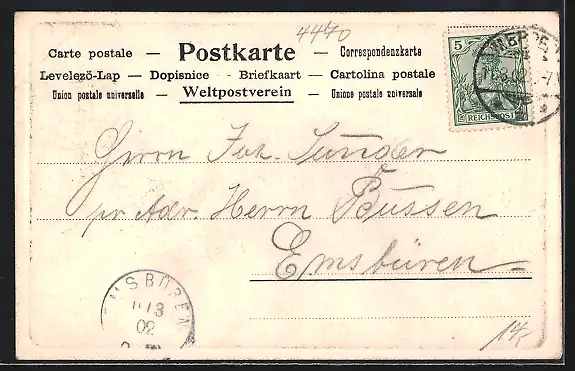 4470
Carte postale — Postkarte — Correspondenzkarte
Levelező-Lap — Dopisnice - - Briefkaart — Cartolina postale
Union postale universelle — Weltpostverein — Unione postale universale
5
REICHSPOST
Herrn Joh. Sunder
pr. Adr. Herrn Bussen
Emsbüren
EMSBÜREN
11/3
02
14,-